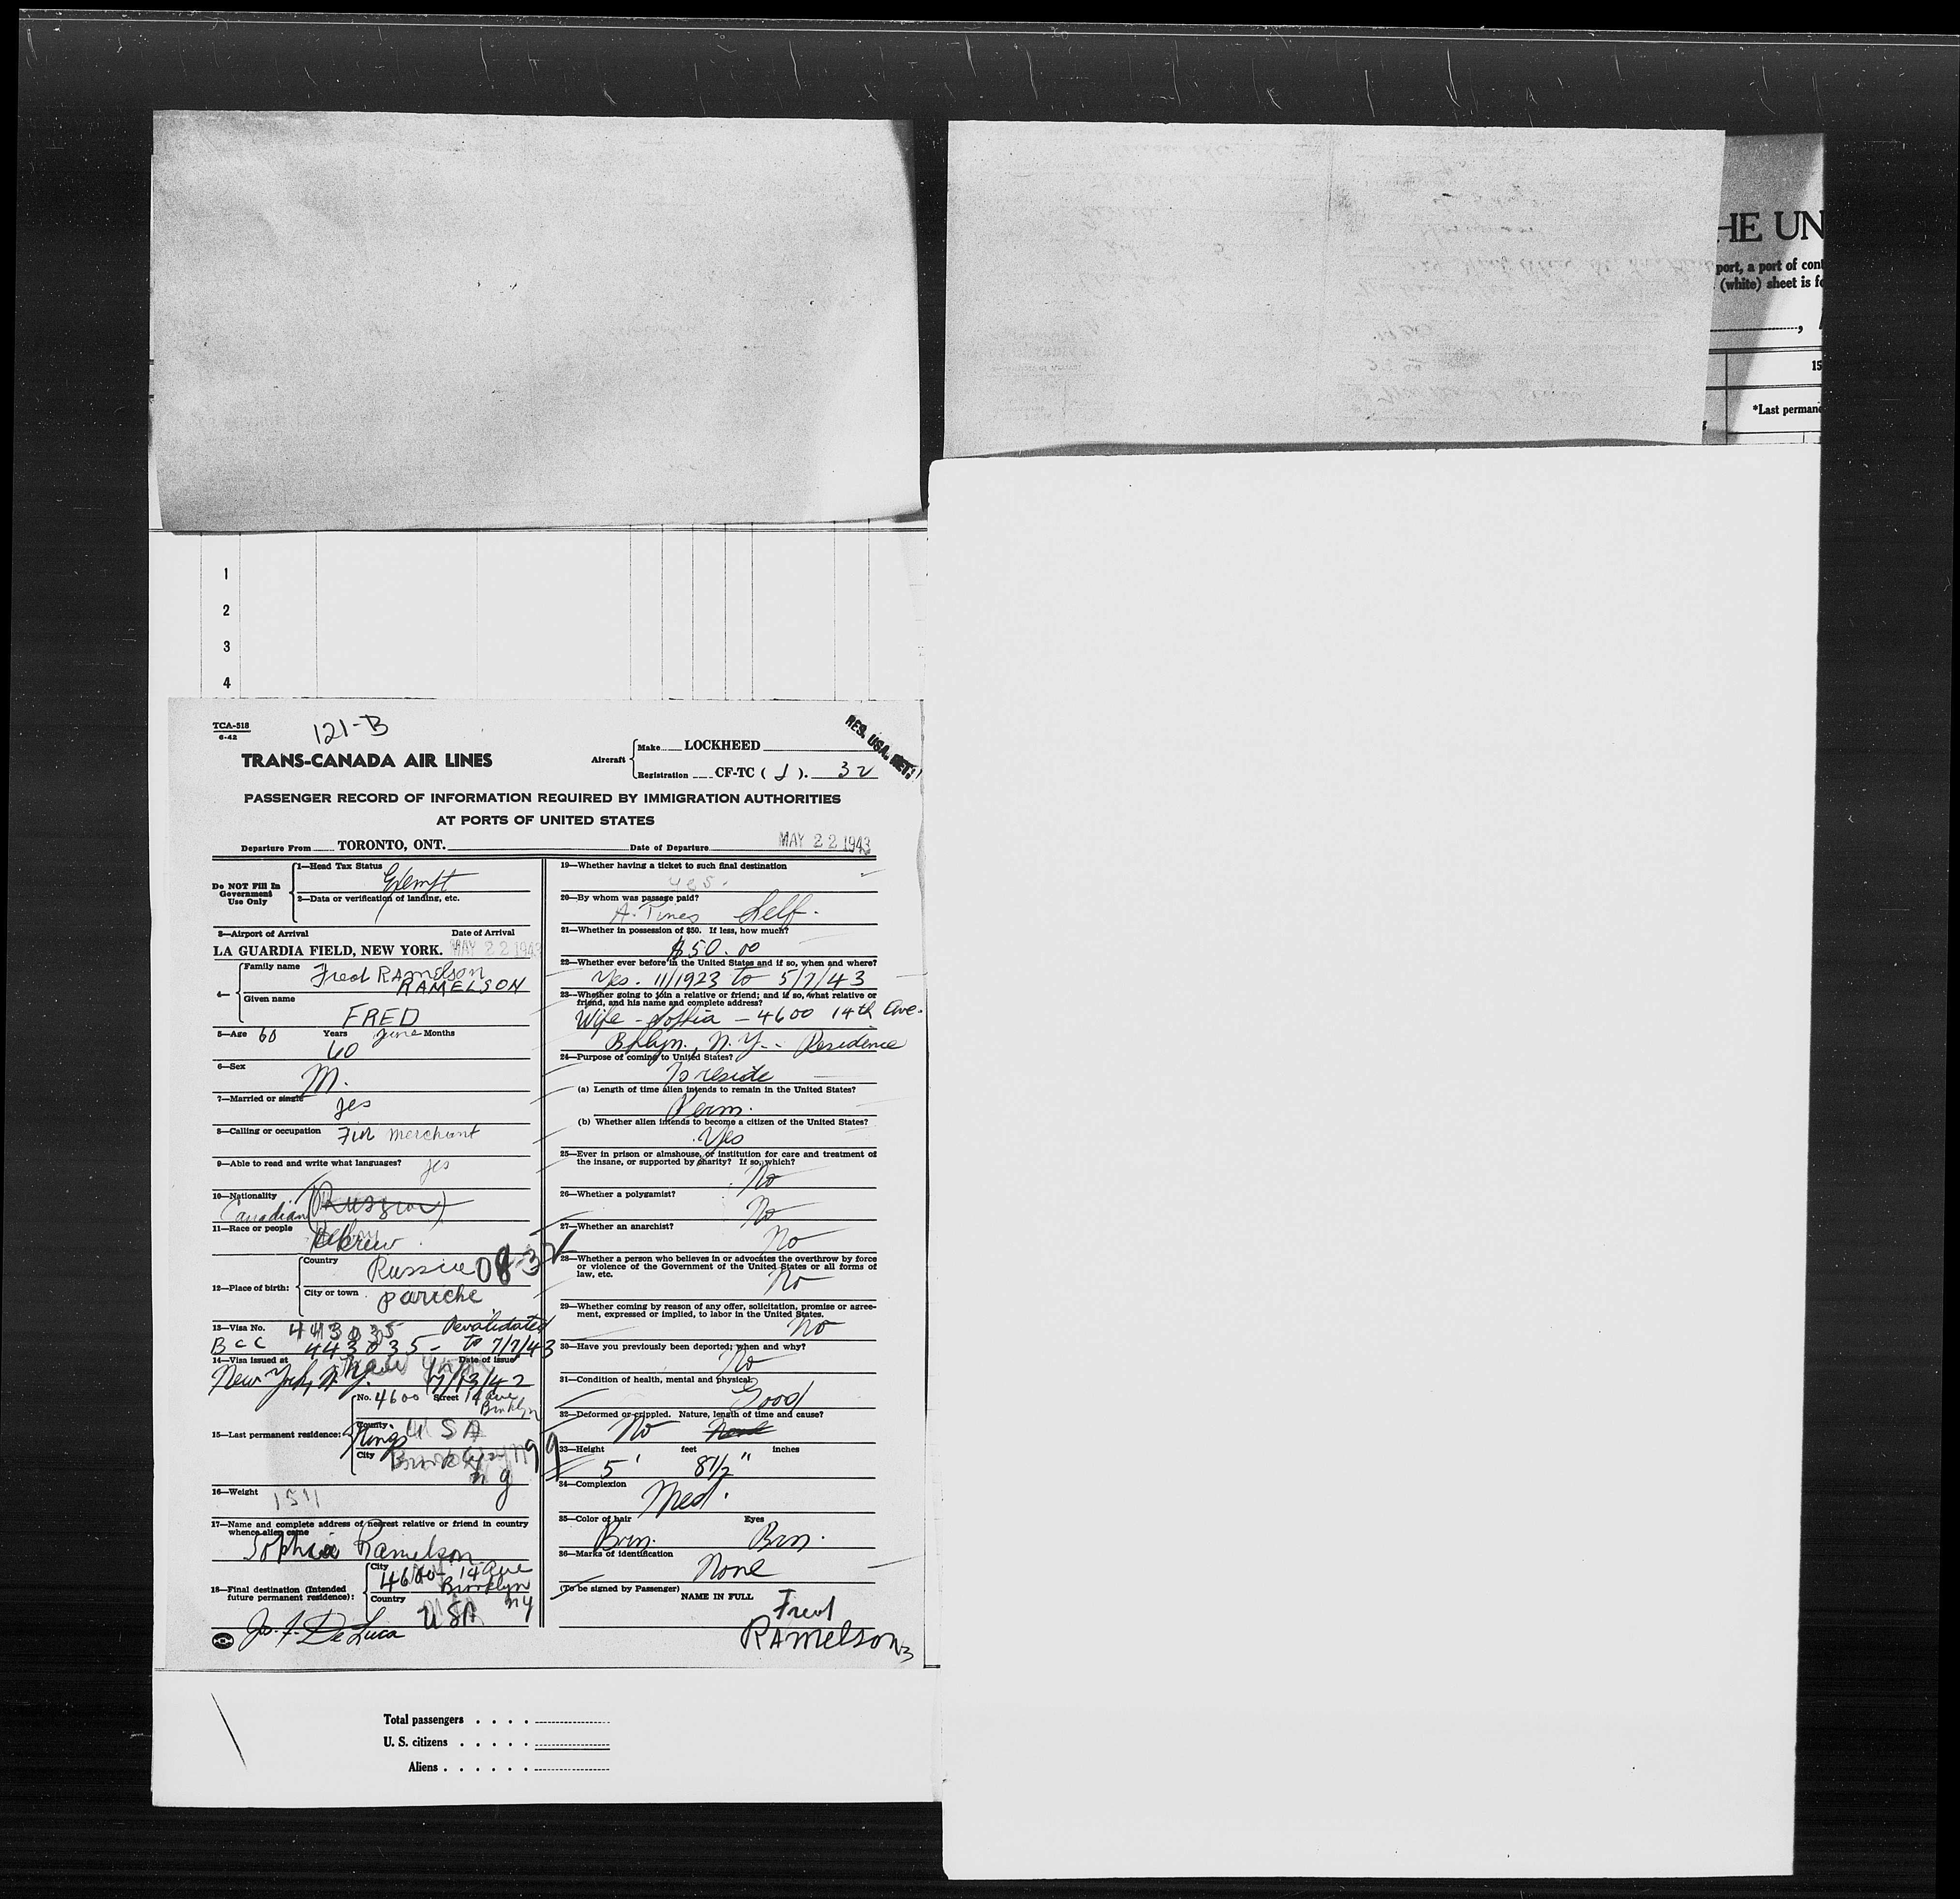 HE UN
port, a port of con
(white) sheet is fo
15
*Last permane
1
2
3
4
TCA-518
6-42
121-B
RES. USA. RET.
TRANS-CANADA AIR LINES
Aircraft
Make LOCKHEED
Registration CF-TC ( J ). 32
PASSENGER RECORD OF INFORMATION REQUIRED BY IMMIGRATION AUTHORITIES
AT PORTS OF UNITED STATES
Departure From TORONTO, ONT. Date of Departure MAY 22 1943
Do NOT Fill In Government Use Only
1—Head Tax Status Exempt
2—Data or verification of landing, etc.
3—Airport of Arrival Date of Arrival
LA GUARDIA FIELD, NEW YORK. MAY 22 1943
4—
Family name Fred RAMELSON
RAMELSON
Given name
FRED
5—Age 60 Years June Months
60
6—Sex
M.
7—Married or single
yes
8—Calling or occupation Fur merchant
9—Able to read and write what languages? yes
10—Nationality
Canadian (Russian)
11—Race or people
Hebrew
12—Place of birth:
Country Russia 08-32
City or town pariche
13—Visa No. 443035 Revalidated
BCC 443035 - to 7/7/43
14—Visa issued at New York Date of issue
New York, N.Y. 7/13/42
15—Last permanent residence:
No. 4600 Street 14 ave
Brooklyn
County Kings USA
City Brooklyn 99
n y
16—Weight
17—Name and complete address of nearest relative or friend in country
whence alien came
Sophia Ramelson
18—Final destination (Intended
future permanent residence):
City 4600 - 14 ave
Brooklyn
Country ny
USA
Jos. F. De Luca
19—Whether having a ticket to such final destination
yes.
20—By whom was passage paid?
A. Pines Self.
21—Whether in possession of $50. If less, how much?
$50.00
22—Whether ever before in the United States and if so, when and where?
Yes. 11/1923 to 5/7/43
23—Whether going to join a relative or friend; and if so, what relative or
friend, and his name and complete address?
Wife - Sophia - 4600 14th Ave.
Bklyn., N.Y. - Residence
24—Purpose of coming to United States?
To reside
(a) Length of time alien intends to remain in the United States?
Perm.
(b) Whether alien intends to become a citizen of the United States?
Yes
25—Ever in prison or almshouse, or institution for care and treatment of
the insane, or supported by charity? If so, which?
No
26—Whether a polygamist?
No
27—Whether an anarchist?
No
28—Whether a person who believes in or advocates the overthrow by force
or violence of the Government of the United States or all forms of
law, etc.
No
29—Whether coming by reason of any offer, solicitation, promise or agree-
ment, expressed or implied, to labor in the United States.
No
30—Have you previously been deported; when and why?
No
31—Condition of health, mental and physical:
Good
32—Deformed or crippled. Nature, length of time and cause?
No None
33—Height feet inches
5' 8 1/2"
34—Complexion
Med.
35—Color of hair Eyes
Brn. Brn.
36—Marks of identification
None
(To be signed by Passenger)
NAME IN FULL
Fred
RAMELSON
Total passengers . . . .
U. S. citizens . . . . .
Aliens . . . . . .